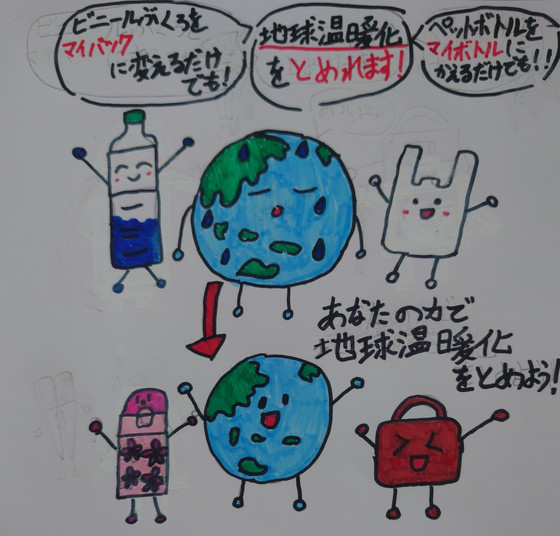 ビニールぶくろを
マイバック
に変えるだけ
でも!
地球温暖化
をとめれます!
ペットボトルを
マイボトルに
かえるだけでも!!
あなたの力で
地球温暖化
をとめよう!